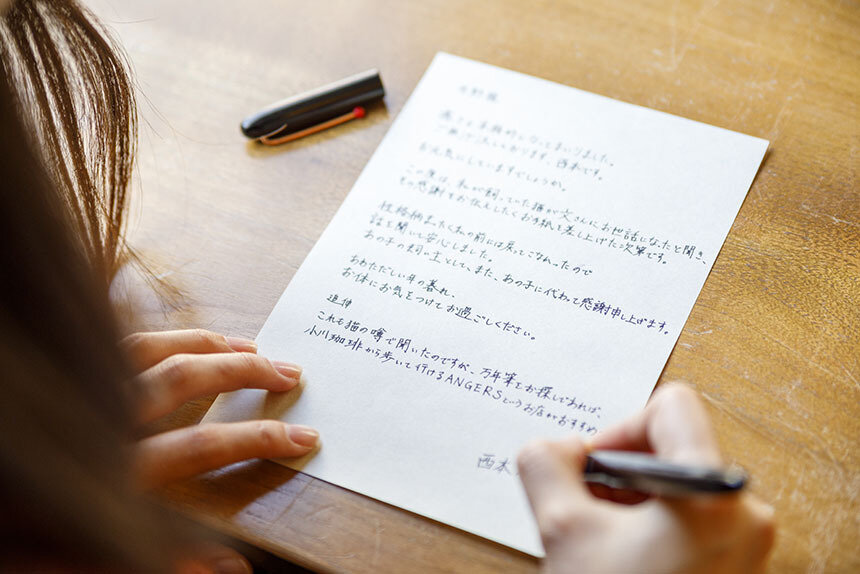 寒さも本格的になってまいりました。
ご無沙汰しております、西本です。
お元気にしていますでしょうか。
この度は、私が飼っていた猫が文さんにお世話になったと聞き、
その感謝をお伝えしたくお手紙を差し上げた次第です。
性格柄まったく私の前には戻ってこなかったので
話を聞いて安心しました。
あの子の飼い主として、また、あの子に代わって感謝申し上げます。
あわただしい年の暮れ、
お体にお気をつけてお過ごしください。
追伸
これも猫の噂で聞いたのですが、万年筆をお探しであれば、
小川珈琲から歩いて行けるANGERSというお店がおすすめ
西本